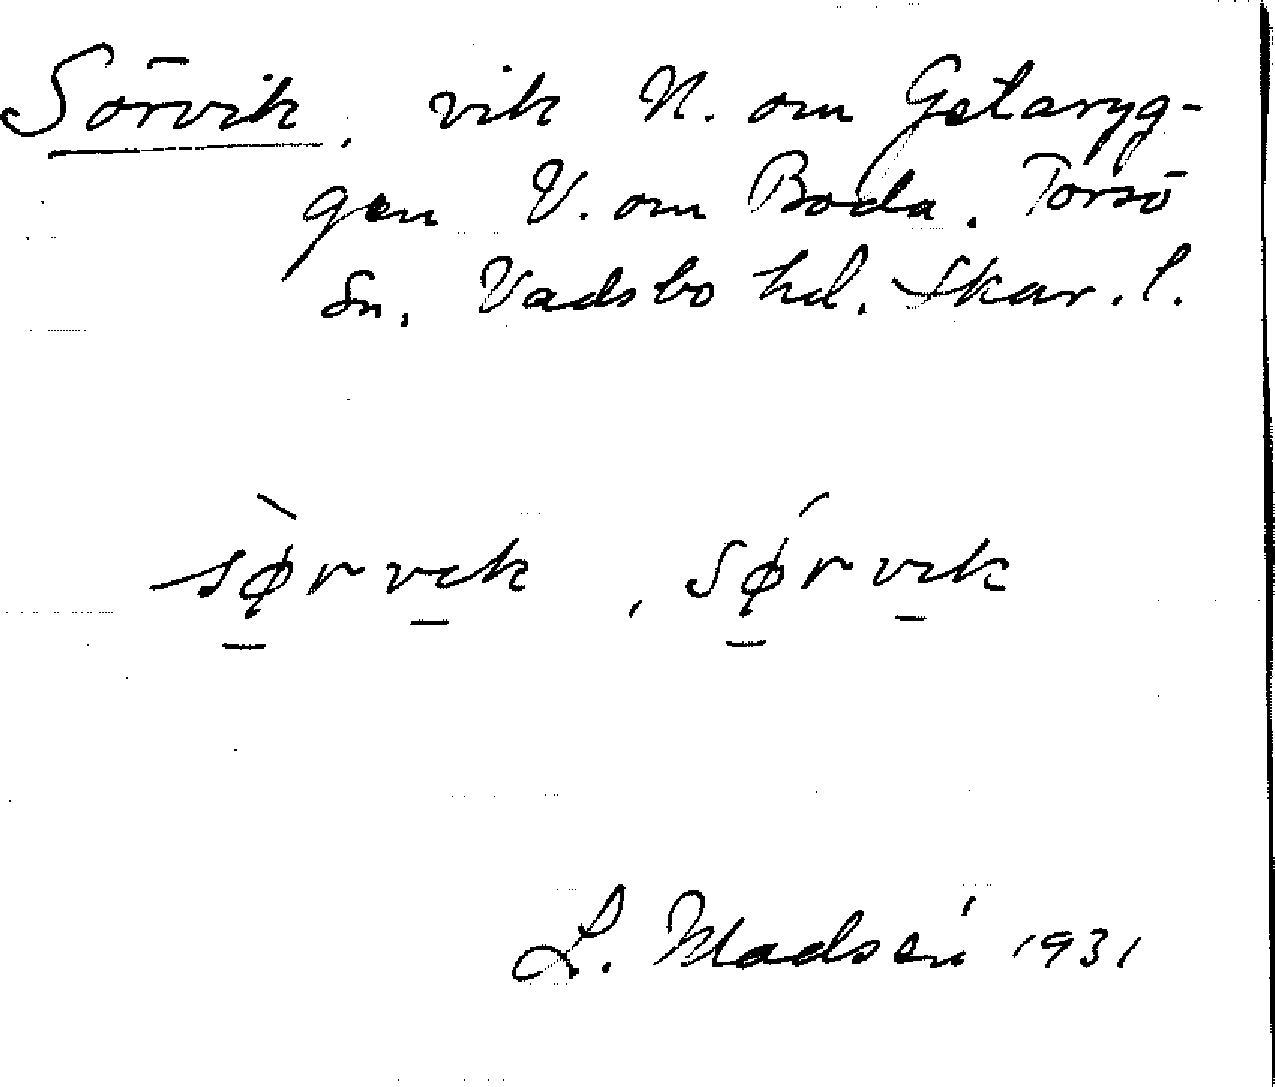 Sörvik, vik N. om Getaryg-
gen V. om Boda. Torsö
sn. Vadsbo hd. Skar. l.
sø̀rvik, sǿrvik
L. Madsén 1931